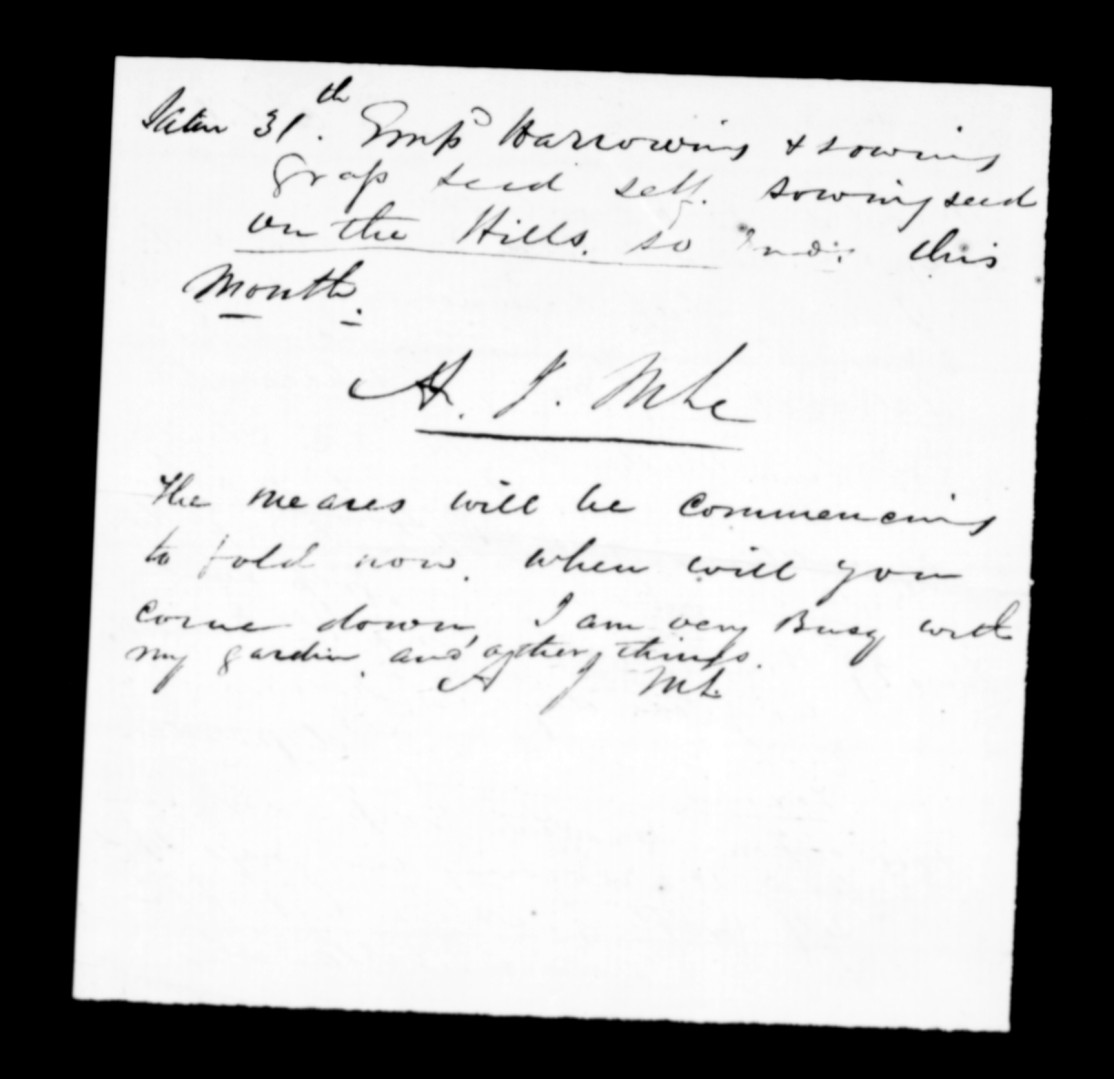 Satur 31th. Empd Harrowing & sowing
Grass seed self. sowing seed
on the Hills. so Ends this
Month.
A. J. McLe
The meares will be commencing
to fold now. when will you
come down, I am very Busy with
my garden. and other things.
A J McL